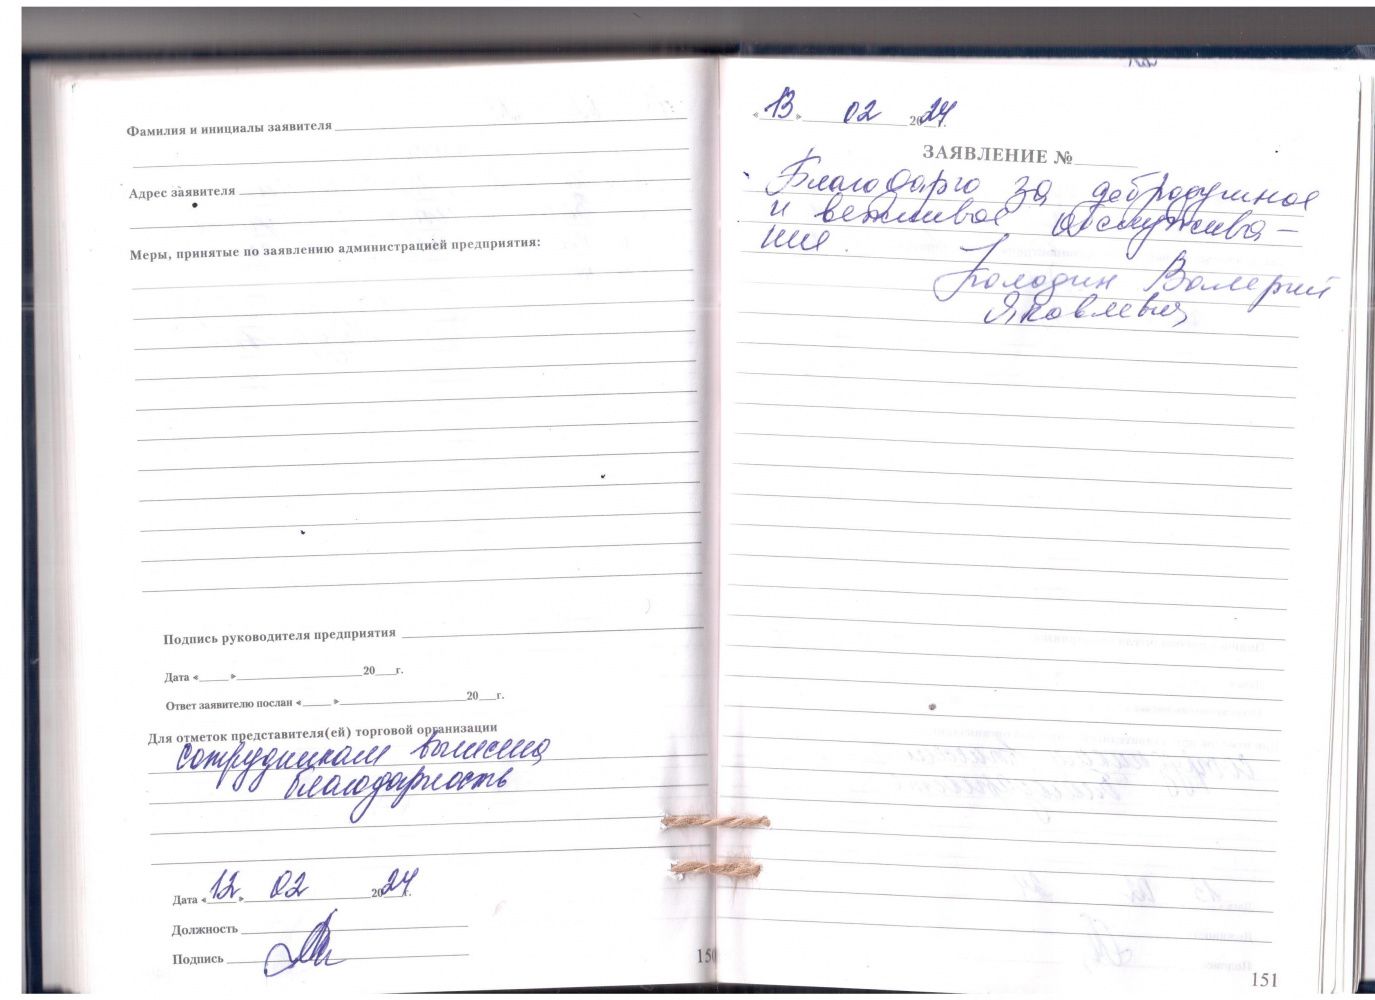 Фамилия и инициалы заявителя
Адрес заявителя
Меры, принятые по заявлению администрацией предприятия:
Подпись руководителя предприятия
Дата «____»____20__г.
Ответ заявителю послан «____»____20__г.
Для отметок представителя(ей) торговой организации
сотрудникам вынесена
благодарность
Дата «12» 02 2024г.
Должность
Подпись
150
«13» 02 2024г.
ЗАЯВЛЕНИЕ №
Благодарю за добродушное
и вежливое обслужива-
ние.
Валерий
Яковлевич
151